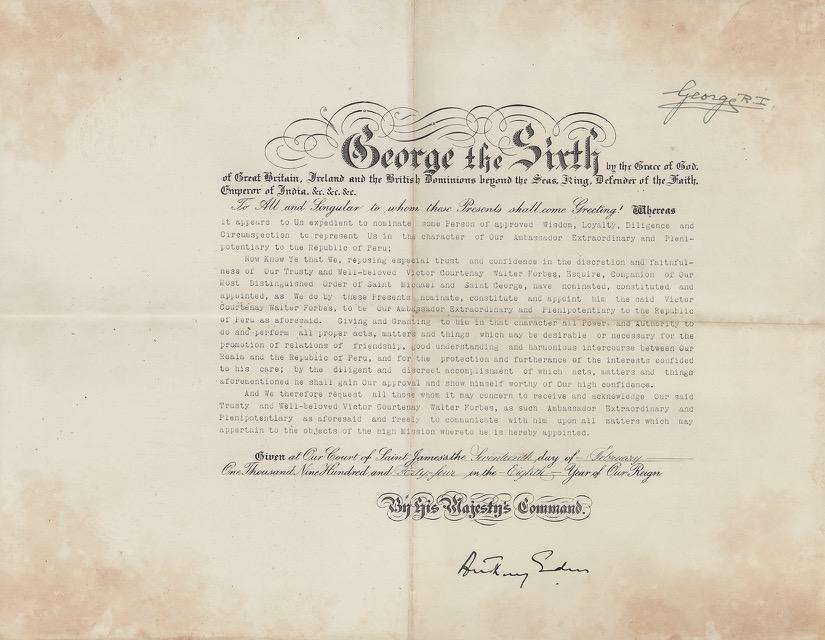 George R.I.
George the Sixth by the Grace of God,
of Great Britain, Ireland and the British Dominions beyond the Seas, King, Defender of the Faith,
Emperor of India, &c. &c. &c.
To All and Singular to whom these Presents shall come Greeting! Whereas
it appears to Us expedient to nominate some Person of approved Wisdom, Loyalty, Diligence and
Circumspection to represent Us in the character of Our Ambassador Extraordinary and Pleni-
potentiary to the Republic of Peru;
Now Know Ye that We, reposing especial trust and confidence in the discretion and faithful-
ness of Our Trusty and Well-beloved Victor Courtenay Walter Forbes, Esquire, Companion of Our
Most Distinguished Order of Saint Michael and Saint George, have nominated, constituted and
appointed, as We do by these Presents nominate, constitute and appoint him the said Victor
Courtenay Walter Forbes, to be Our Ambassador Extraordinary and Plenipotentiary to the Republic
of Peru as aforesaid. Giving and Granting to him in that character all Power and Authority to
do and perform all proper acts, matters and things which may be desirable or necessary for the
promotion of relations of friendship, good understanding and harmonious intercourse between Our
Realm and the Republic of Peru, and for the protection and furtherance of the interests confided
to his care; by the diligent and discreet accomplishment of which acts, matters and things
aforementioned he shall gain Our approval and show himself worthy of Our high confidence.
And We therefore request all those whom it may concern to receive and acknowledge Our said
Trusty and Well-beloved Victor Courtenay Walter Forbes, as such Ambassador Extraordinary and
Plenipotentiary as aforesaid and freely to communicate with him upon all matters which may
appertain to the objects of the high Mission whereto he is hereby appointed.
Given at Our Court of Saint James's, the Seventeenth day of February
One Thousand Nine Hundred and Forty-four in the Eighth Year of Our Reign
By His Majesty's Command.
Anthony Eden